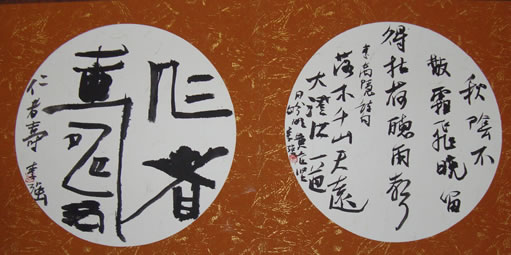 秋陰不
散霜飛晚留
得枯荷聽雨聲
李商隱詩句
落木千山天遠
大澄江一道
月分明 黃庭堅
李強
仁者
壽
仁者壽 李強